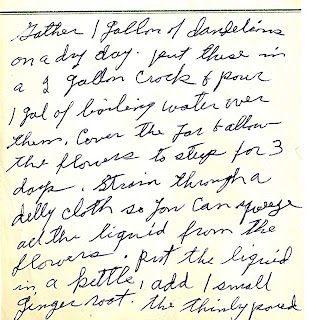 Gather 1 gallon of dandelions
on a dry day. put these in
a 2 gallon crock & pour
1 gal of boiling water over
them. Cover the jar & allow
the flowers to steep for 3
days. Strain through a
jelly cloth so you can squeeze
all the liquid from the
flowers. put the liquid
in a kettle, add 1 small
ginger root. the thinly pared